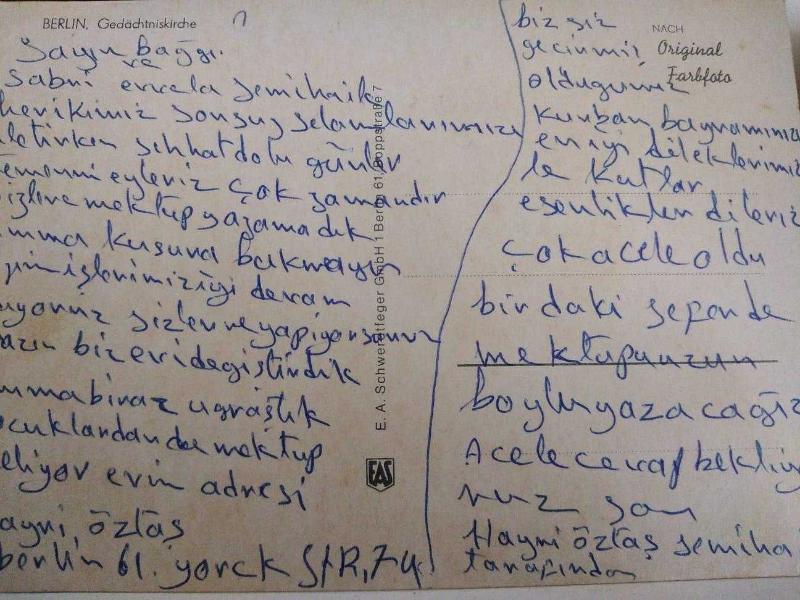 BERLIN, Gedächtniskirche
Sayın bağgı.
ve
Sabri ervela Semihaik
herikimiz sonsuz selamlarımızı
letirken sıhhat dolu günler
temenni eyleriz çok zamandır
izlere mektup yazamadık
amma kusura bakmayın
işlerimiz iyi devam
uyoruz sizler ne yapiyorsunuz
biz evi degiştirdik
ammabiraz ugraştık
ocuklardanda mektup
eliyor evin adresi
ayri, öztaş
berlin 61. yorck StR, 74
E. A. Schwerdtfeger GmbH 1 Berlin 61, Boppstraße 7
EAS
NACH
Original
Farbfoto
biz siz
gecirmiş
oldugunuz
Kurban bayramınızı
en iyi dileklerimiz
le kutlar
esenlikler dileriz
çok acele oldu
bir daki seferde
mektupuuzun
boylu yazacağız
Acele cevap bekliy
ruz son
Hayri öztaş semiha
tarafından